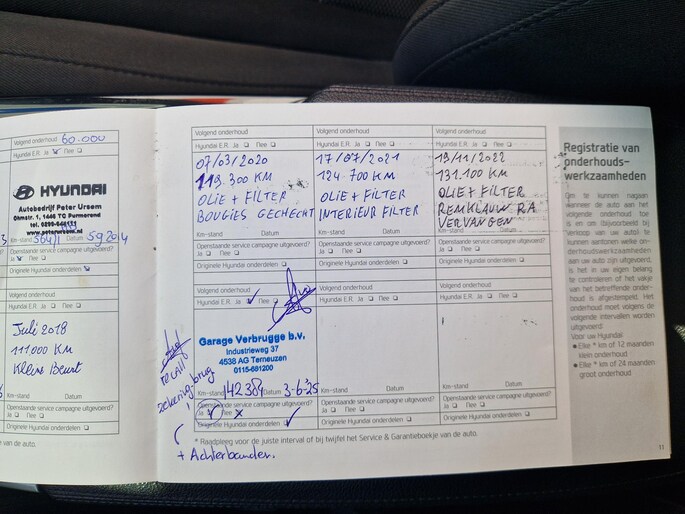 Volgend onderhoud 60.000
Hyundai E.R. Ja Nee
HYUNDAI
Autobedrijf Peter Ursem
Ohmstr. 1, 1446 TC Purmerend
tel. 0299-646131
www.peterursem.nl
Km-stand Datum
Openstaande service campagne uitgevoerd?
Ja Nee
Originele Hyundai onderdelen
Volgend onderhoud
Hyundai E.R. Ja Nee
Juli 2018
111000 KM
Kleine Beurt
Km-stand Datum
Openstaande service campagne uitgevoerd?
Ja Nee
Originele Hyundai onderdelen
Volgend onderhoud
Hyundai E.R. Ja Nee
07/03/2020
119.300 KM
OLIE + FILTER
BOUGIES GECHECHT
Km-stand Datum
Openstaande service campagne uitgevoerd?
Ja Nee
Originele Hyundai onderdelen
Volgend onderhoud
Hyundai E.R. Ja Nee
17/07/2021
124 700 KM
OLIE + FILTER
INTERIEUR FILTER
Km-stand Datum
Openstaande service campagne uitgevoerd?
Ja Nee
Originele Hyundai onderdelen
Volgend onderhoud
Hyundai E.R. Ja Nee
19/11/2022
131.100 KM
OLIE + FILTER
REMKLAUW RA
VERVANGEN
Km-stand Datum
Openstaande service campagne uitgevoerd?
Ja Nee
Originele Hyundai onderdelen
Volgend onderhoud
Hyundai E.R. Ja Nee
Garage Verbrugge b.v.
Industrieweg 37
4538 AG Terneuzen
0115-681200
Km-stand 142384 Datum 3-6-25
Openstaande service campagne uitgevoerd?
Ja Nee
Originele Hyundai onderdelen
recall
+ Achterbanden.
Volgend onderhoud
Hyundai E.R. Ja Nee
Km-stand Datum
Openstaande service campagne uitgevoerd?
Ja Nee
Originele Hyundai onderdelen
Volgend onderhoud
Hyundai E.R. Ja Nee
Km-stand Datum
Openstaande service campagne uitgevoerd?
Ja Nee
Originele Hyundai onderdelen
* Raadpleeg voor de juiste interval of bij twijfel het Service & Garantieboekje van de auto.
van de auto.
Registratie van
onderhouds-
werkzaamheden
Om te kunnen nagaan
wanneer de auto aan het
volgende onderhoud toe
is en om (bijvoorbeeld bij
verkoop van uw auto) te
kunnen aantonen welke on-
derhoudswerkzaamheden
aan uw auto zijn uitgevoerd,
is het in uw eigen belang
te controleren of het vakje
van het betreffende onder-
houd is afgestempeld. Het
onderhoud moet volgens de
volgende intervallen worden
uitgevoerd:
Voor uw Hyundai
Elke * km of 12 maanden
klein onderhoud
Elke * km of 24 maanden
groot onderhoud
11